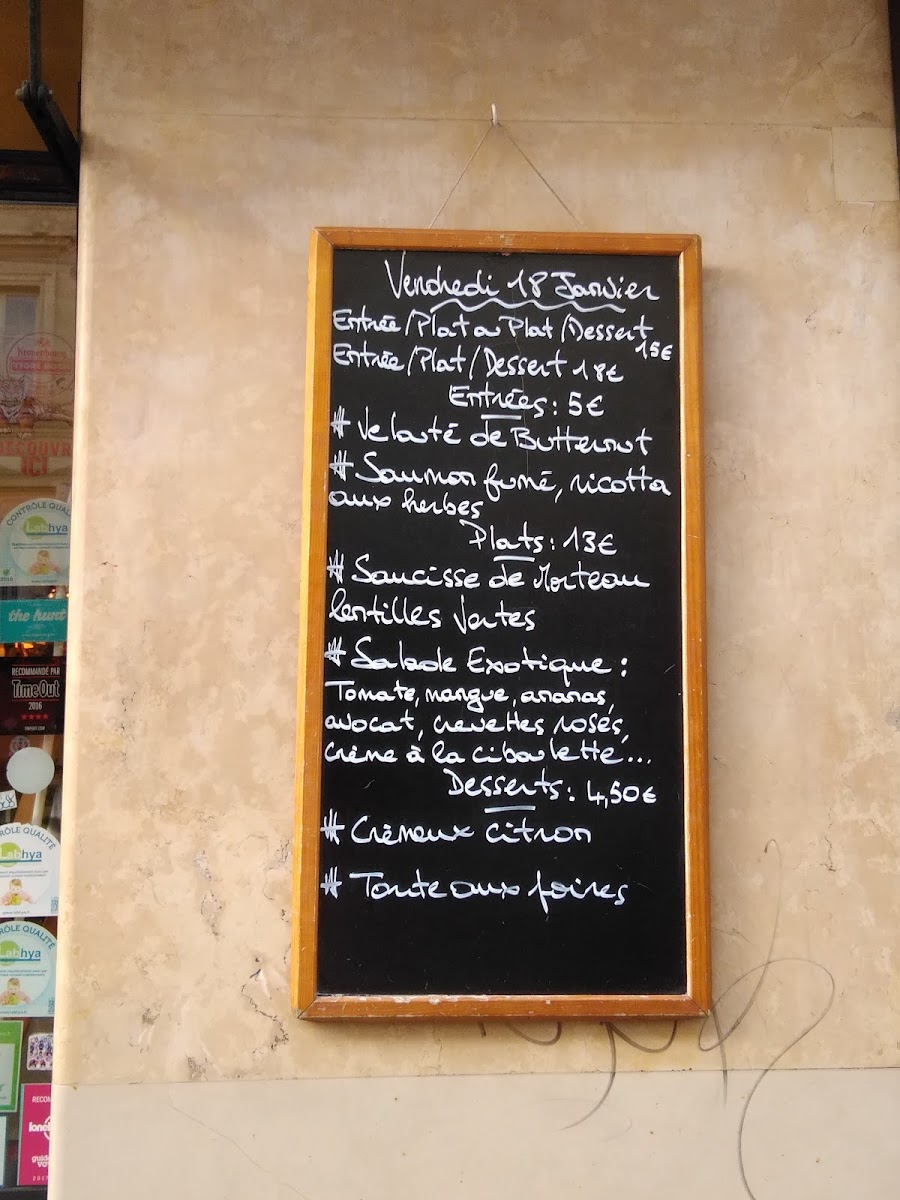 Vendredi 18 Janvier
Entrée/Plat ou Plat/Dessert
15€
Entrée/Plat/Dessert 18€
Entrées: 5€
# Velouté de Butternut
# Saumon fumé, ricotta
aux herbes
Plats: 13€
# Saucisse de Morteau
lentilles vertes
# Salade Exotique :
Tomate, mangue, ananas,
avocat, crevettes roses,
crème à la ciboulette...
Desserts: 4,50€
# Crémeux citron
# Tarte aux poires
CONTRÔLE QUAL
Labhya
the hunt
RECOMMANDÉ PAR
TimeOut
2016
RÔLE QUALITÉ
Labhya
RÔLE QUALITÉ
Labhya
RECOM
lonel
guide
voy